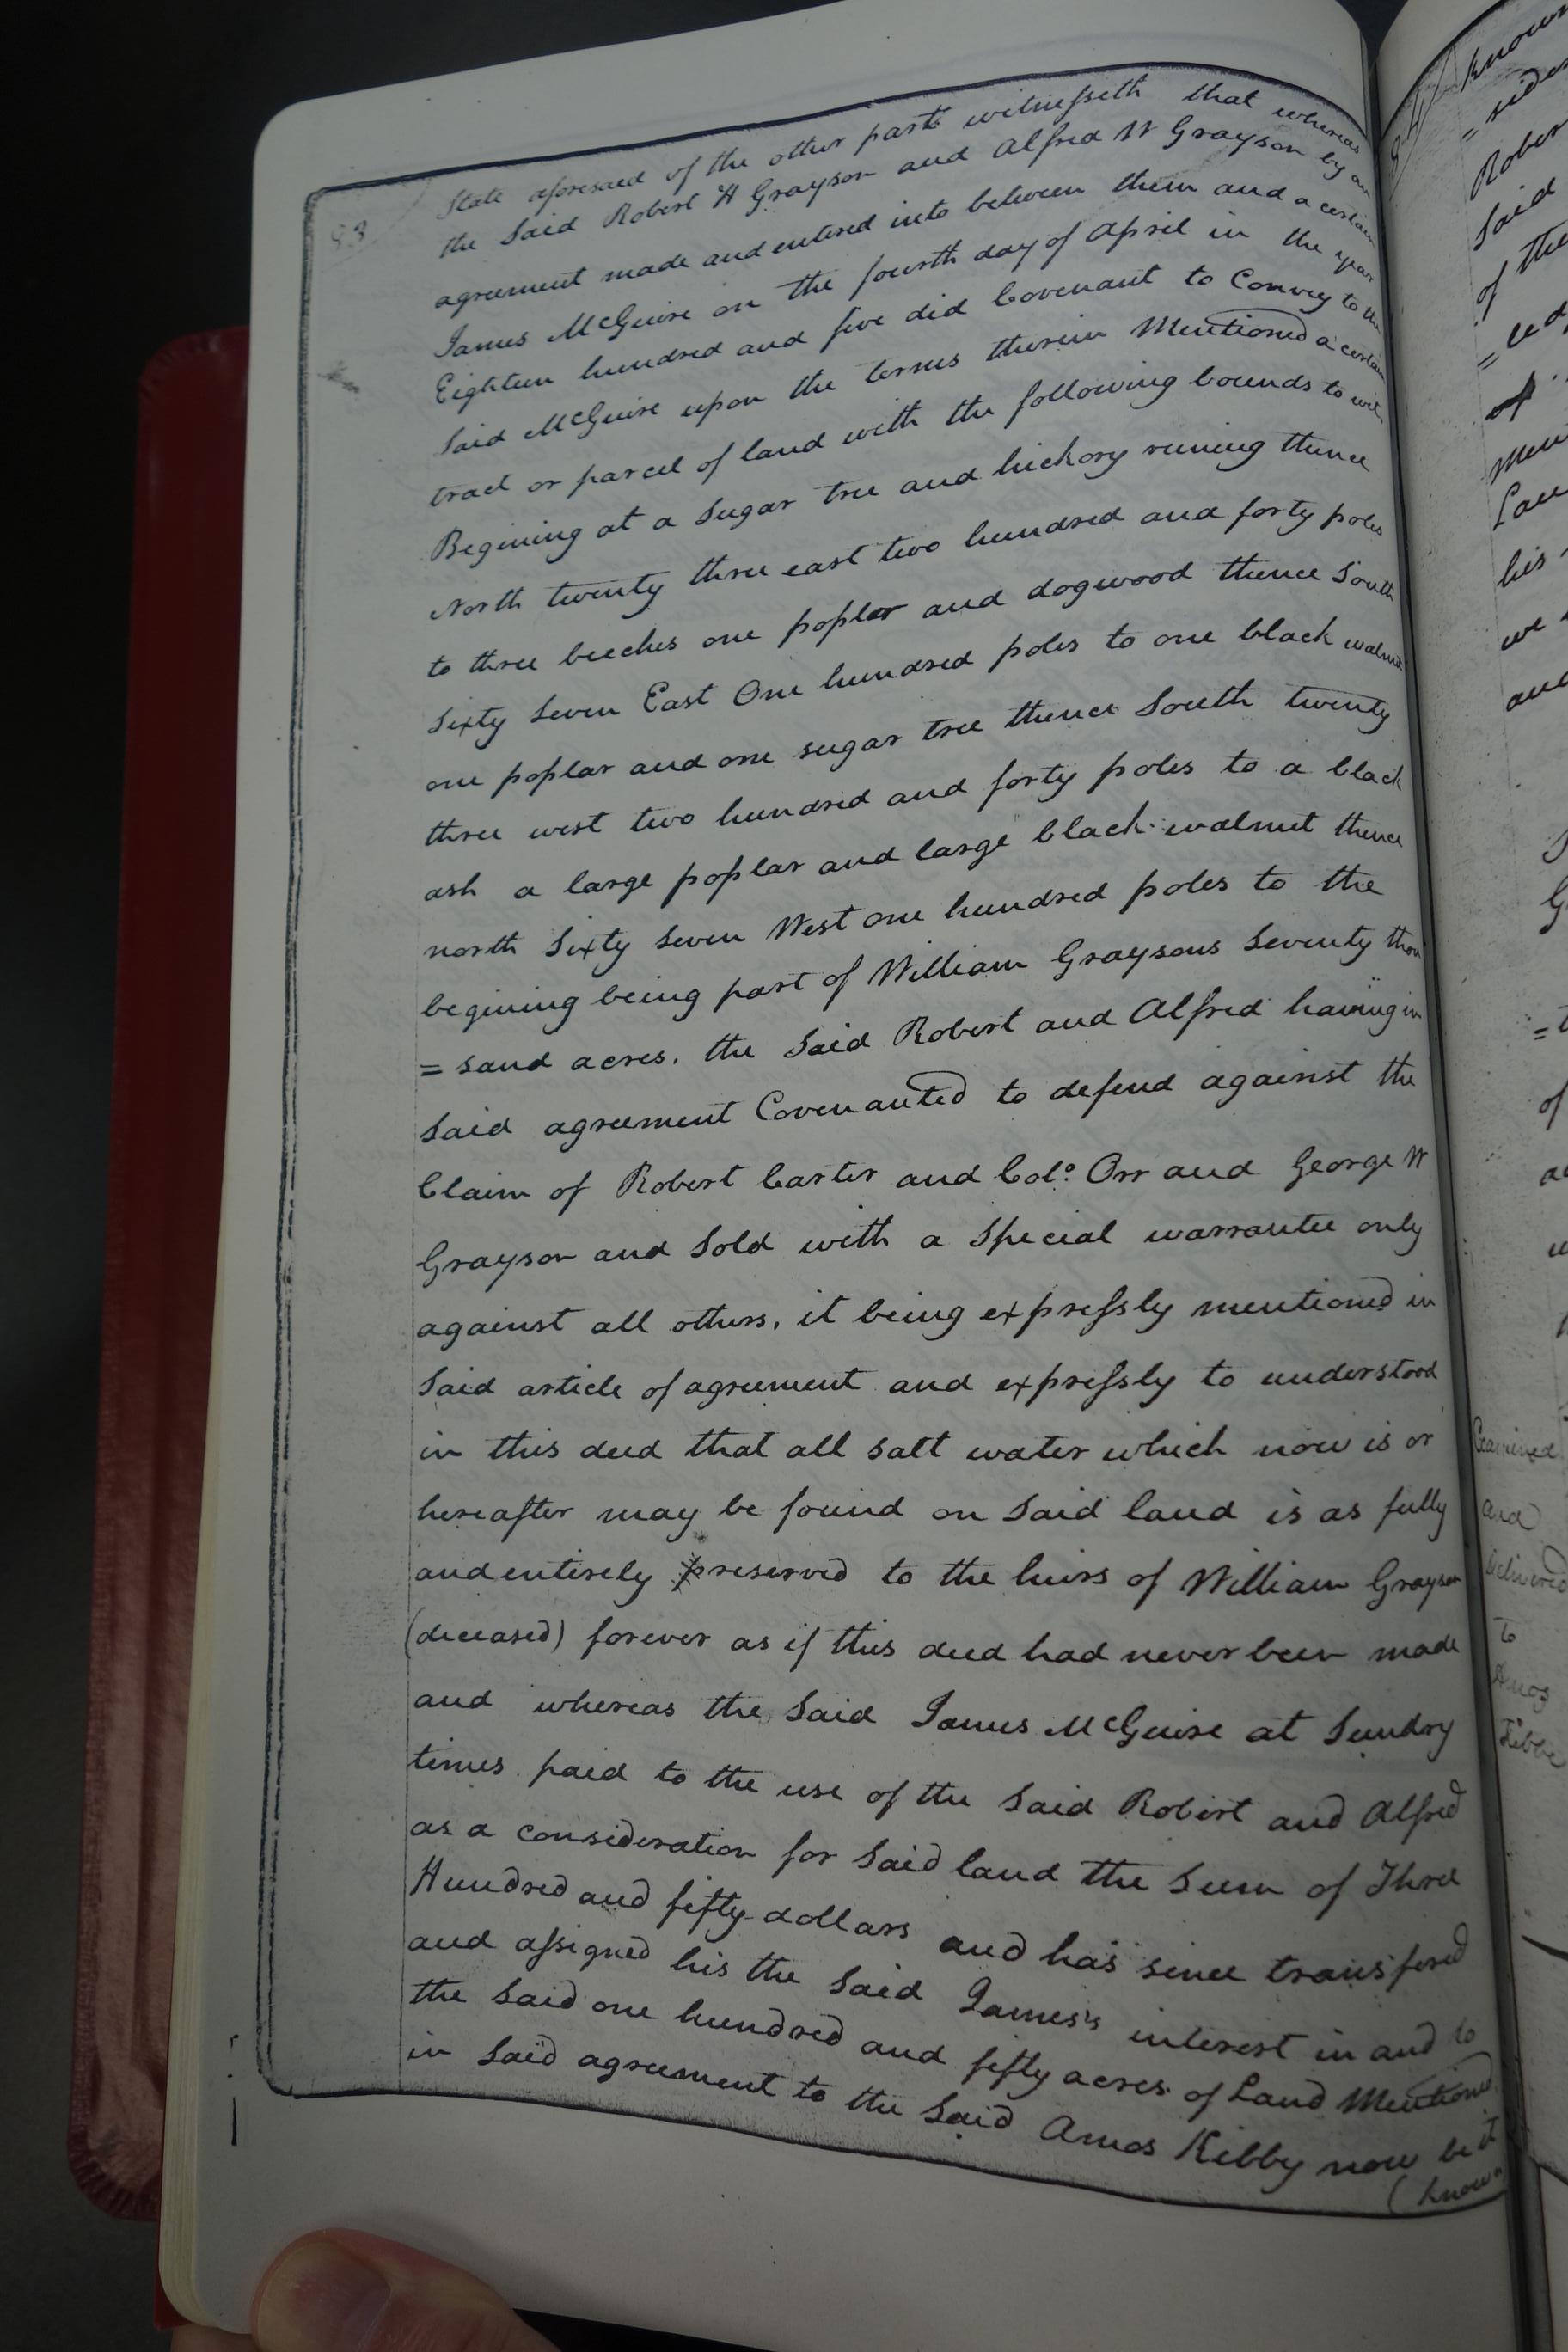 83
State aforesaid of the other part witnesseth that whereas
the Said Robert H Grayson and Alfred W Grayson by an
agreement made and entered into between them and a certain
James McGuire on the fourth day of April in the year
Eighteen hundred and five did Covenant to Convey to the
Said McGuire upon the terms therein Mentioned a certain
tract or parcel of land with the following bounds to wit
Begining at a Sugar tree and hickory runing thence
North twenty three east two hundred and forty poles
to three beeches one poplar and dogwood thence South
Sixty Seven East One hundred poles to one black walnut
one poplar and one sugar tree thence South twenty
three west two hundred and forty poles to a black
ash a large poplar and large black walnut thence
north Sixty Seven West one hundred poles to the
begining being part of William Graysons Seventy thou
= sand acres. the Said Robert and Alfred having in
Said agreement Covenanted to defend against the
Claim of Robert Carter and Colo. Orr and George W
Grayson and Sold with a Special warrantee only
against all others, it being expressly mentioned in
Said article of agreement and expressly to understood
in this deed that all salt water which now is or
hereafter may be found on Said land is as fully
and entirely preserved to the heirs of William Grayson
(deceased) forever as if this deed had never been made
and whereas the Said James McGuire at Sundry
times paid to the use of the Said Robert and Alfred
as a consideration for Said land the Sum of Three
Hundred and fifty dollars and has since transfered
and assigned his the Said James's interest in and to
the Said one hundred and fifty acres of Land Mentioned
in Said agreement to the Said Amos Kibby now be it
(known
84
known
= siden
Rober
Said
of the
= ced
of
Men
Lan
his
we
and
of
Examined
and
delivered
to
Amos
Kibbe